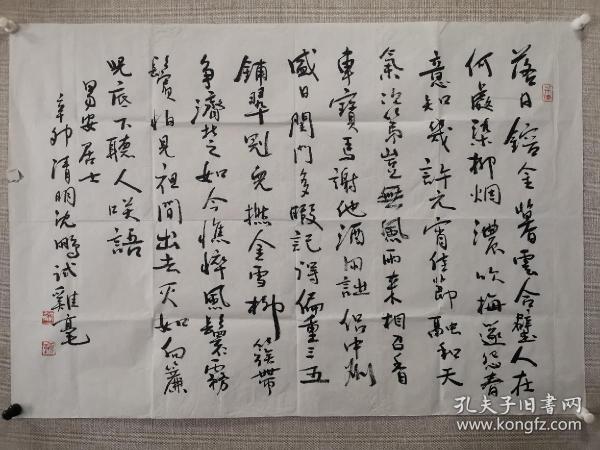 落日鎔金暮雲合璧人在
何處染柳烟濃吹梅笛怨春
意知幾許元宵佳節融和天
氣次第豈無風雨來相召香
車寶馬謝他酒朋詩侶中州
盛日閨門多暇記得偏重三五
鋪翠冠兒撚金雪柳簇帶
争濟楚如今憔悴風鬟霧
鬢怕見夜間出去不如向簾
兒底下聽人咲語
易安居士
辛卯清明沈鵬試雞毫
孔夫子旧书网
www.kongfz.com